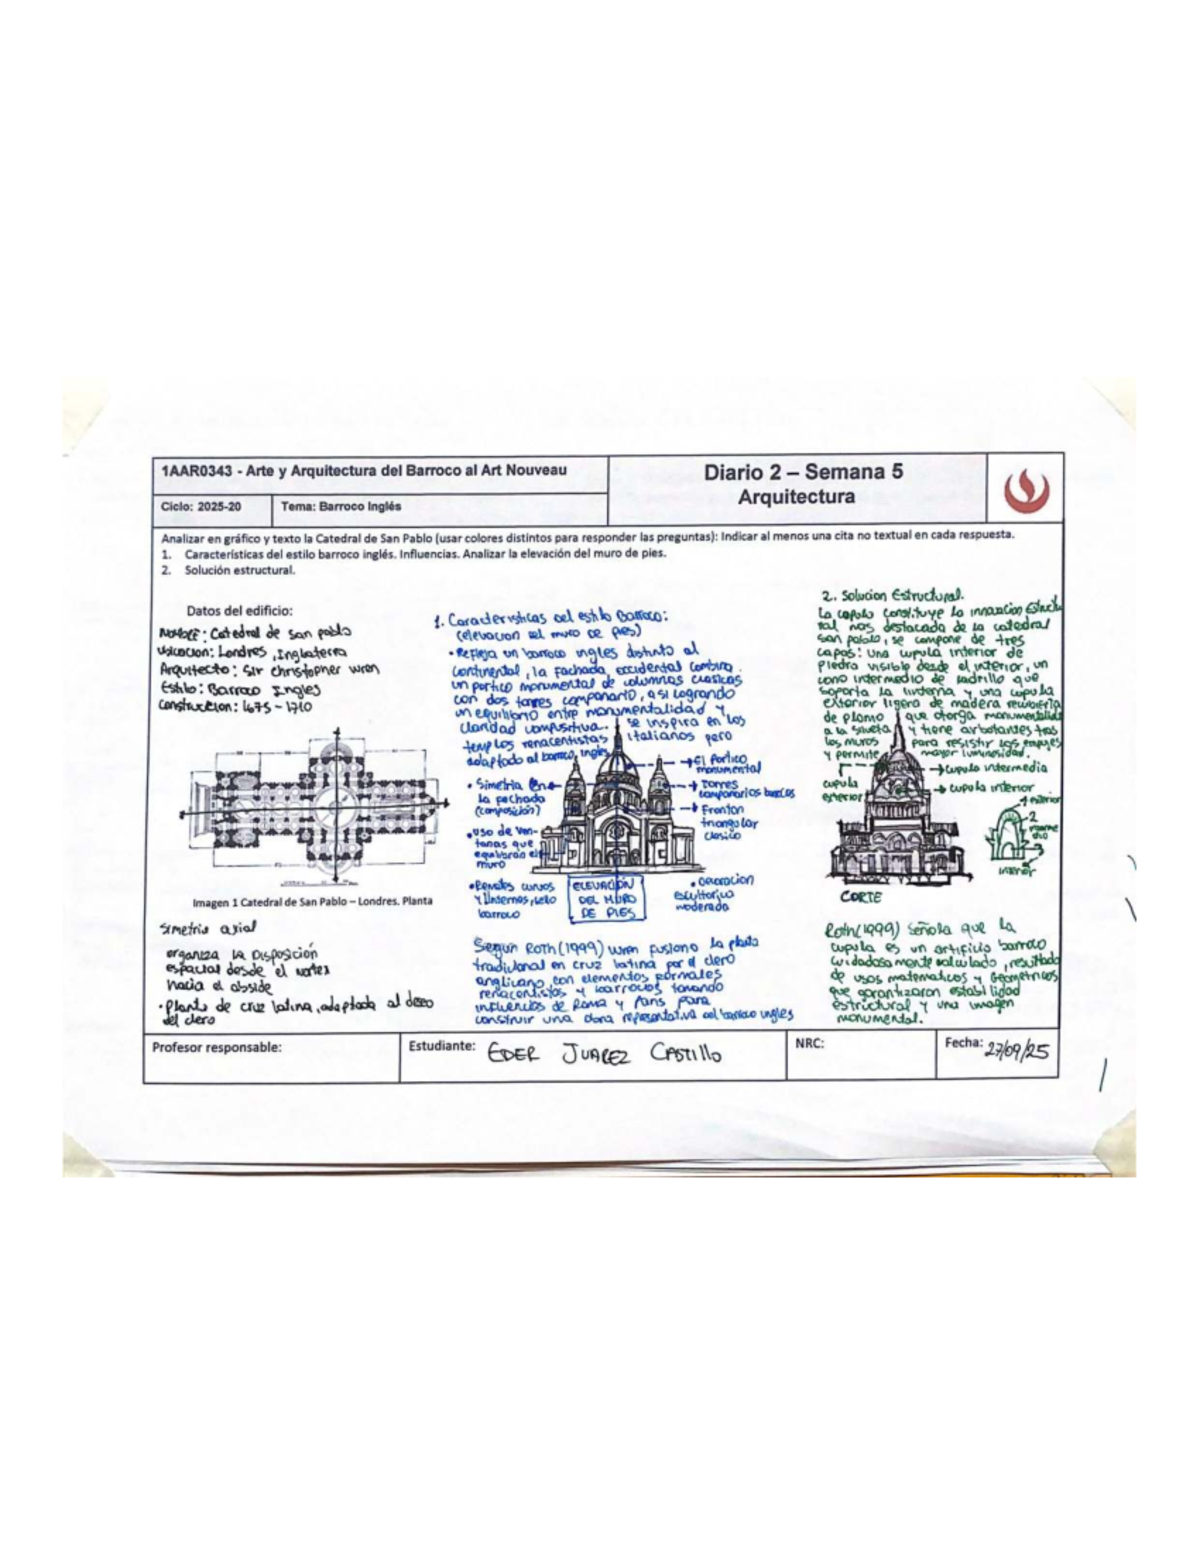 1AAR0343 - Arte y Arquitectura del Barroco al Art Nouveau
Diario 2 – Semana 5
Arquitectura
Ciclo: 2025-20
Tema: Barroco Inglés
Analizar en gráfico y texto la Catedral de San Pablo (usar colores distintos para responder las preguntas): Indicar al menos una cita no textual en cada respuesta.
1. Características del estilo barroco inglés. Influencias. Analizar la elevación del muro de pies.
2. Solución estructural.
Datos del edificio:
Nombre: Catedral de san pablo
Ubicacion: Londres, Inglaterra
Arquitecto: Sir christopher wren
Estilo: Barroco Ingles
Construccion: 1675 - 1710
Imagen 1 Catedral de San Pablo – Londres. Planta
Simetria axial
organiza la Disposición
espacial desde el nartex
hacia el abside
• Planta de cruz latina, adaptada al deseo
del clero
1. Caracteristicas del estilo Barroco:
(elevacion del muro de pies)
• Refleja un barroco ingles distinto al
continental, la fachada occidental combina
un portico monumental de columnas clasicas
con dos torres campanario, asi logrando
un equilibrio entre monumentalidad y
claridad compositiva. se inspira en los
templos renacentistas italianos pero
adaptado al barroco ingles
• Simetria en
la fachada
(composición)
• uso de ven-
tanas que
equilibran el
muro
• Remates curvos
y linternas, sello
barroco
→ El Portico
monumental
→ torres
campanarios barrocos
→ Fronton
triangular
clasico
• Decoracion
escultorica
moderada
ELEVACIÓN
DEL MURO
DE PIES
Según Roth (1999) wren fusiono la planta
tradicional en cruz latina por el clero
anglicano con elementos formales
renacentistas y barrocos tomando
influencias de Roma y Paris para
construir una obra representativa del barroco ingles
2. Solucion Estructural.
La cupula constituye la innovacion estructu
ral mas destacada de la catedral
san pablo, se compone de tres
capas: una cupula interior de
piedra visible desde el interior, un
cono intermedio de ladrillo que
soporta la linterna y una cupula
exterior ligera de madera recubierta
de plomo que otorga monumentalidad
a la silueta y tiene arbotantes tras
los muros para resistir los empujes
y permite mayor luminosidad.
cupula
exterior
→ cupula intermedia
→ cupula interior
2
3
interior
CORTE
Roth (1999) Señala que la
cupula es un artificio barroco
cuidadosamente calculado, resultado
de usos matematicos y Geometricos
que garantizaron estabilidad
estructural y una imagen
monumental.
Profesor responsable:
Estudiante: EDER JUAREZ CASTILLO
NRC:
Fecha: 27/09/25